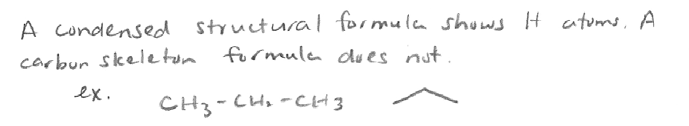 A condensed structural formula shows H atoms. A
carbon skeleton formula does not.
ex.
CH₃-CH₂-CH3